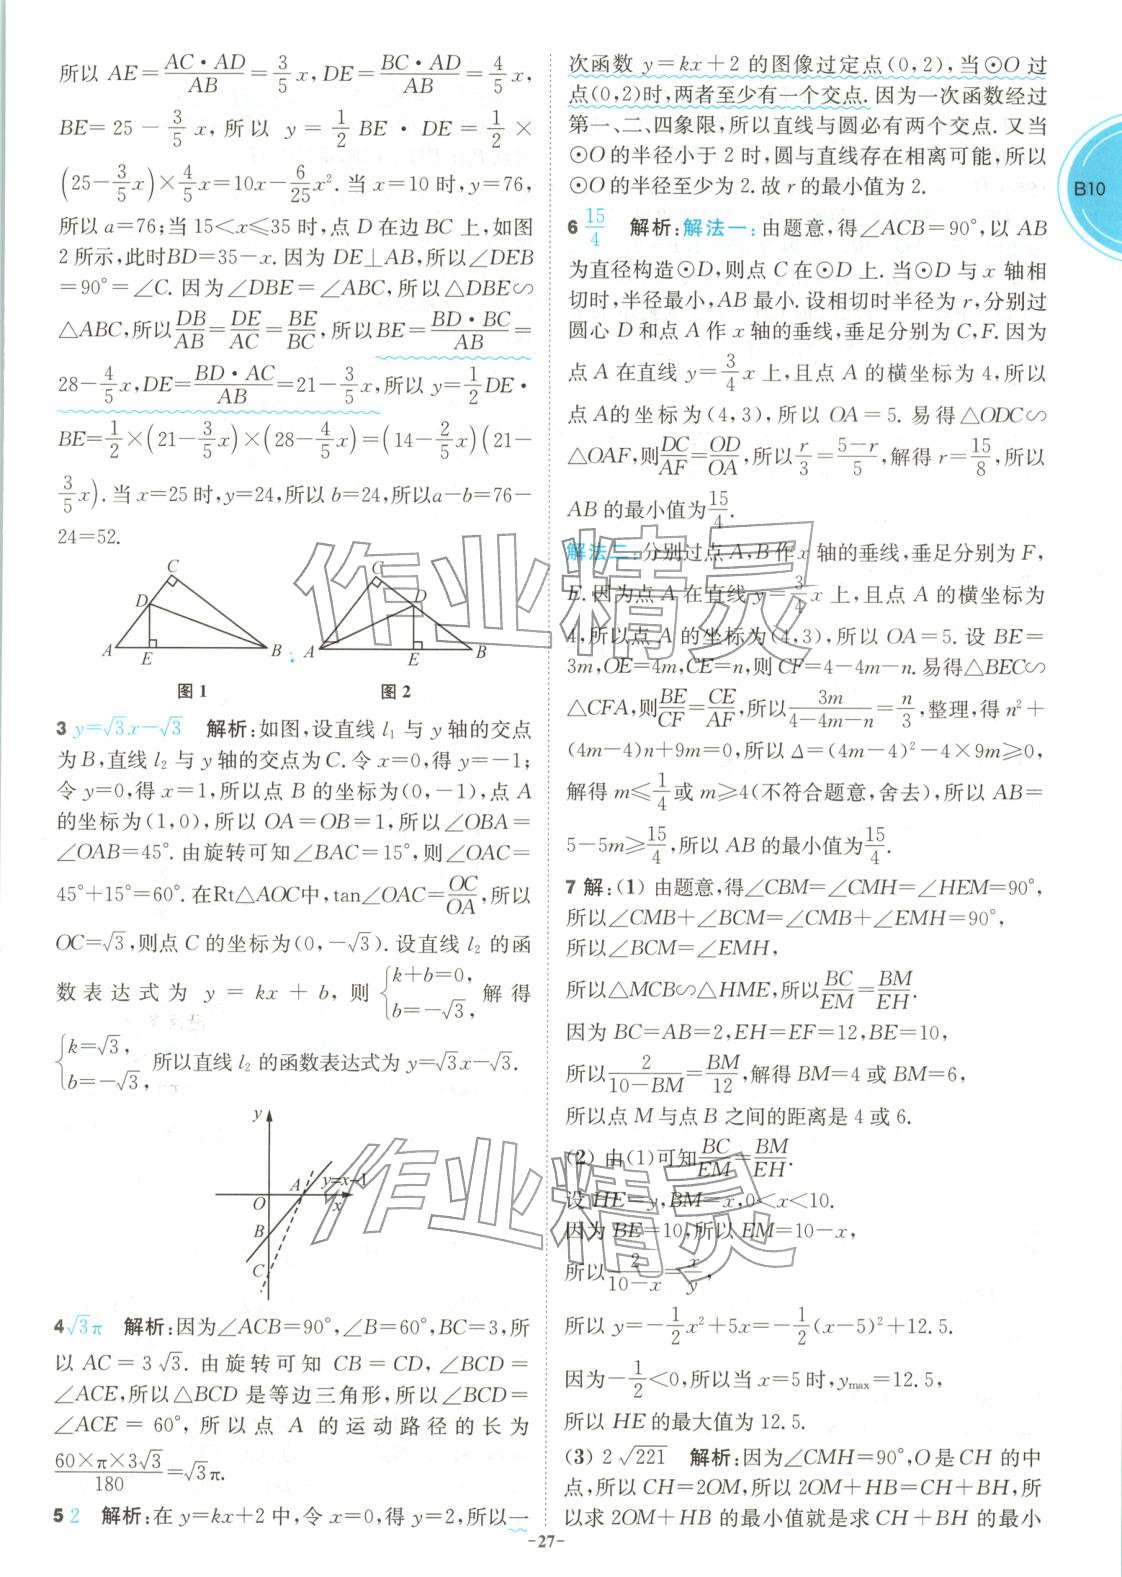 所以 AE=AC·AD/AB=3/5x,DE=BC·AD/AB=4/5x,
BE=25-3/5x,所以 y=1/2BE·DE=1/2×
(25-3/5x)×4/5x=10x-6/25x².当 x=10 时,y=76,
所以 a=76;当 15<x≤35 时,点 D 在边 BC 上,如图
2 所示,此时BD=35-x.因为 DE⊥AB,所以∠DEB
=90°=∠C.因为∠DBE=∠ABC,所以△DBE∽
△ABC,所以DB/AB=DE/AC=BE/BC,所以 BE=BD·BC/AB=
28-4/5x,DE=BD·AC/AB=21-3/5x,所以 y=1/2DE·
BE=1/2×(21-3/5x)×(28-4/5x)=(14-2/5x)(21-
3/5x).当 x=25 时,y=24,所以 b=24,所以a-b=76-
24=52.
C
D
A
E
B
图 1
C
D
A
E
B
图 2
3 y=√3x-√3 解析:如图,设直线 l₁ 与 y 轴的交点
为 B,直线 l₂ 与 y 轴的交点为 C.令 x=0,得 y=-1;
令 y=0,得 x=1,所以点 B 的坐标为(0,-1),点 A
的坐标为(1,0),所以 OA=OB=1,所以∠OBA=
∠OAB=45°.由旋转可知∠BAC=15°,则∠OAC=
45°+15°=60°.在Rt△AOC中,tan∠OAC=OC/OA,所以
OC=√3,则点 C 的坐标为(0,-√3).设直线 l₂ 的函
数表达式为 y=kx+b,则{k+b=0, b=-√3, 解得
{k=√3, b=-√3, 所以直线 l₂ 的函数表达式为 y=√3x-√3.
y
A
y=x-1
O
x
B
C
4 √3π 解析:因为∠ACB=90°,∠B=60°,BC=3,所
以 AC=3√3.由旋转可知 CB=CD,∠BCD=
∠ACE,所以△BCD 是等边三角形,所以∠BCD=
∠ACE=60°,所以点 A 的运动路径的长为
60×π×3√3/180=√3π.
5 2 解析:在 y=kx+2 中,令 x=0,得 y=2,所以一
次函数 y=kx+2 的图像过定点(0,2),当⊙O 过
点(0,2)时,两者至少有一个交点.因为一次函数经过
第一、二、四象限,所以直线与圆必有两个交点.又当
⊙O 的半径小于 2 时,圆与直线存在相离可能,所以
⊙O 的半径至少为 2.故 r 的最小值为 2.
6 15/4 解析:解法一:由题意,得∠ACB=90°,以 AB
为直径构造⊙D,则点 C 在⊙D 上.当⊙D 与 x 轴相
切时,半径最小,AB 最小.设相切时半径为 r,分别过
圆心 D 和点 A 作 x 轴的垂线,垂足分别为 C,F.因为
点 A 在直线 y=3/4x 上,且点 A 的横坐标为 4,所以
点 A的坐标为(4,3),所以 OA=5.易得△ODC∽
△OAF,则DC/AF=OD/OA,所以r/3=5-r/5,解得 r=15/8,所以
AB 的最小值为15/4.
解法二:分别过点 A,B 作 x 轴的垂线,垂足分别为 F,
E.因为点 A 在直线 y=3/4x 上,且点 A 的横坐标为
4,所以点 A 的坐标为(4,3),所以 OA=5.设 BE=
3m,OE=4m,CE=n,则 CF=4-4m-n.易得△BEC∽
△CFA,则BE/CF=CE/AF,所以3m/4-4m-n=n/3,整理,得 n²+
(4m-4)n+9m=0,所以 Δ=(4m-4)²-4×9m≥0,
解得 m≤1/4或 m≥4(不符合题意,舍去),所以 AB=
5-5m≥15/4,所以 AB 的最小值为15/4.
7 解:(1) 由题意,得∠CBM=∠CMH=∠HEM=90°,
所以∠CMB+∠BCM=∠CMB+∠EMH=90°,
所以∠BCM=∠EMH,
所以△MCB∽△HME,所以BC/EM=BM/EH.
因为 BC=AB=2,EH=EF=12,BE=10,
所以2/10-BM=BM/12,解得 BM=4 或 BM=6,
所以点 M 与点 B 之间的距离是 4 或 6.
(2) 由(1)可知BC/EM=BM/EH.
设 HE=y,BM=x,0<x<10.
因为 BE=10,所以 EM=10-x,
所以2/10-x=x/y,
所以 y=-1/2x²+5x=-1/2(x-5)²+12.5.
因为-1/2<0,所以当 x=5 时,yₘₐₓ=12.5,
所以 HE 的最大值为 12.5.
(3) 2√221 解析:因为∠CMH=90°,O 是 CH 的中
点,所以 CH=2OM,所以 2OM+HB=CH+BH,所
以求 2OM+HB 的最小值就是求 CH+BH 的最小
B10
-27-
作业精灵
作业精灵